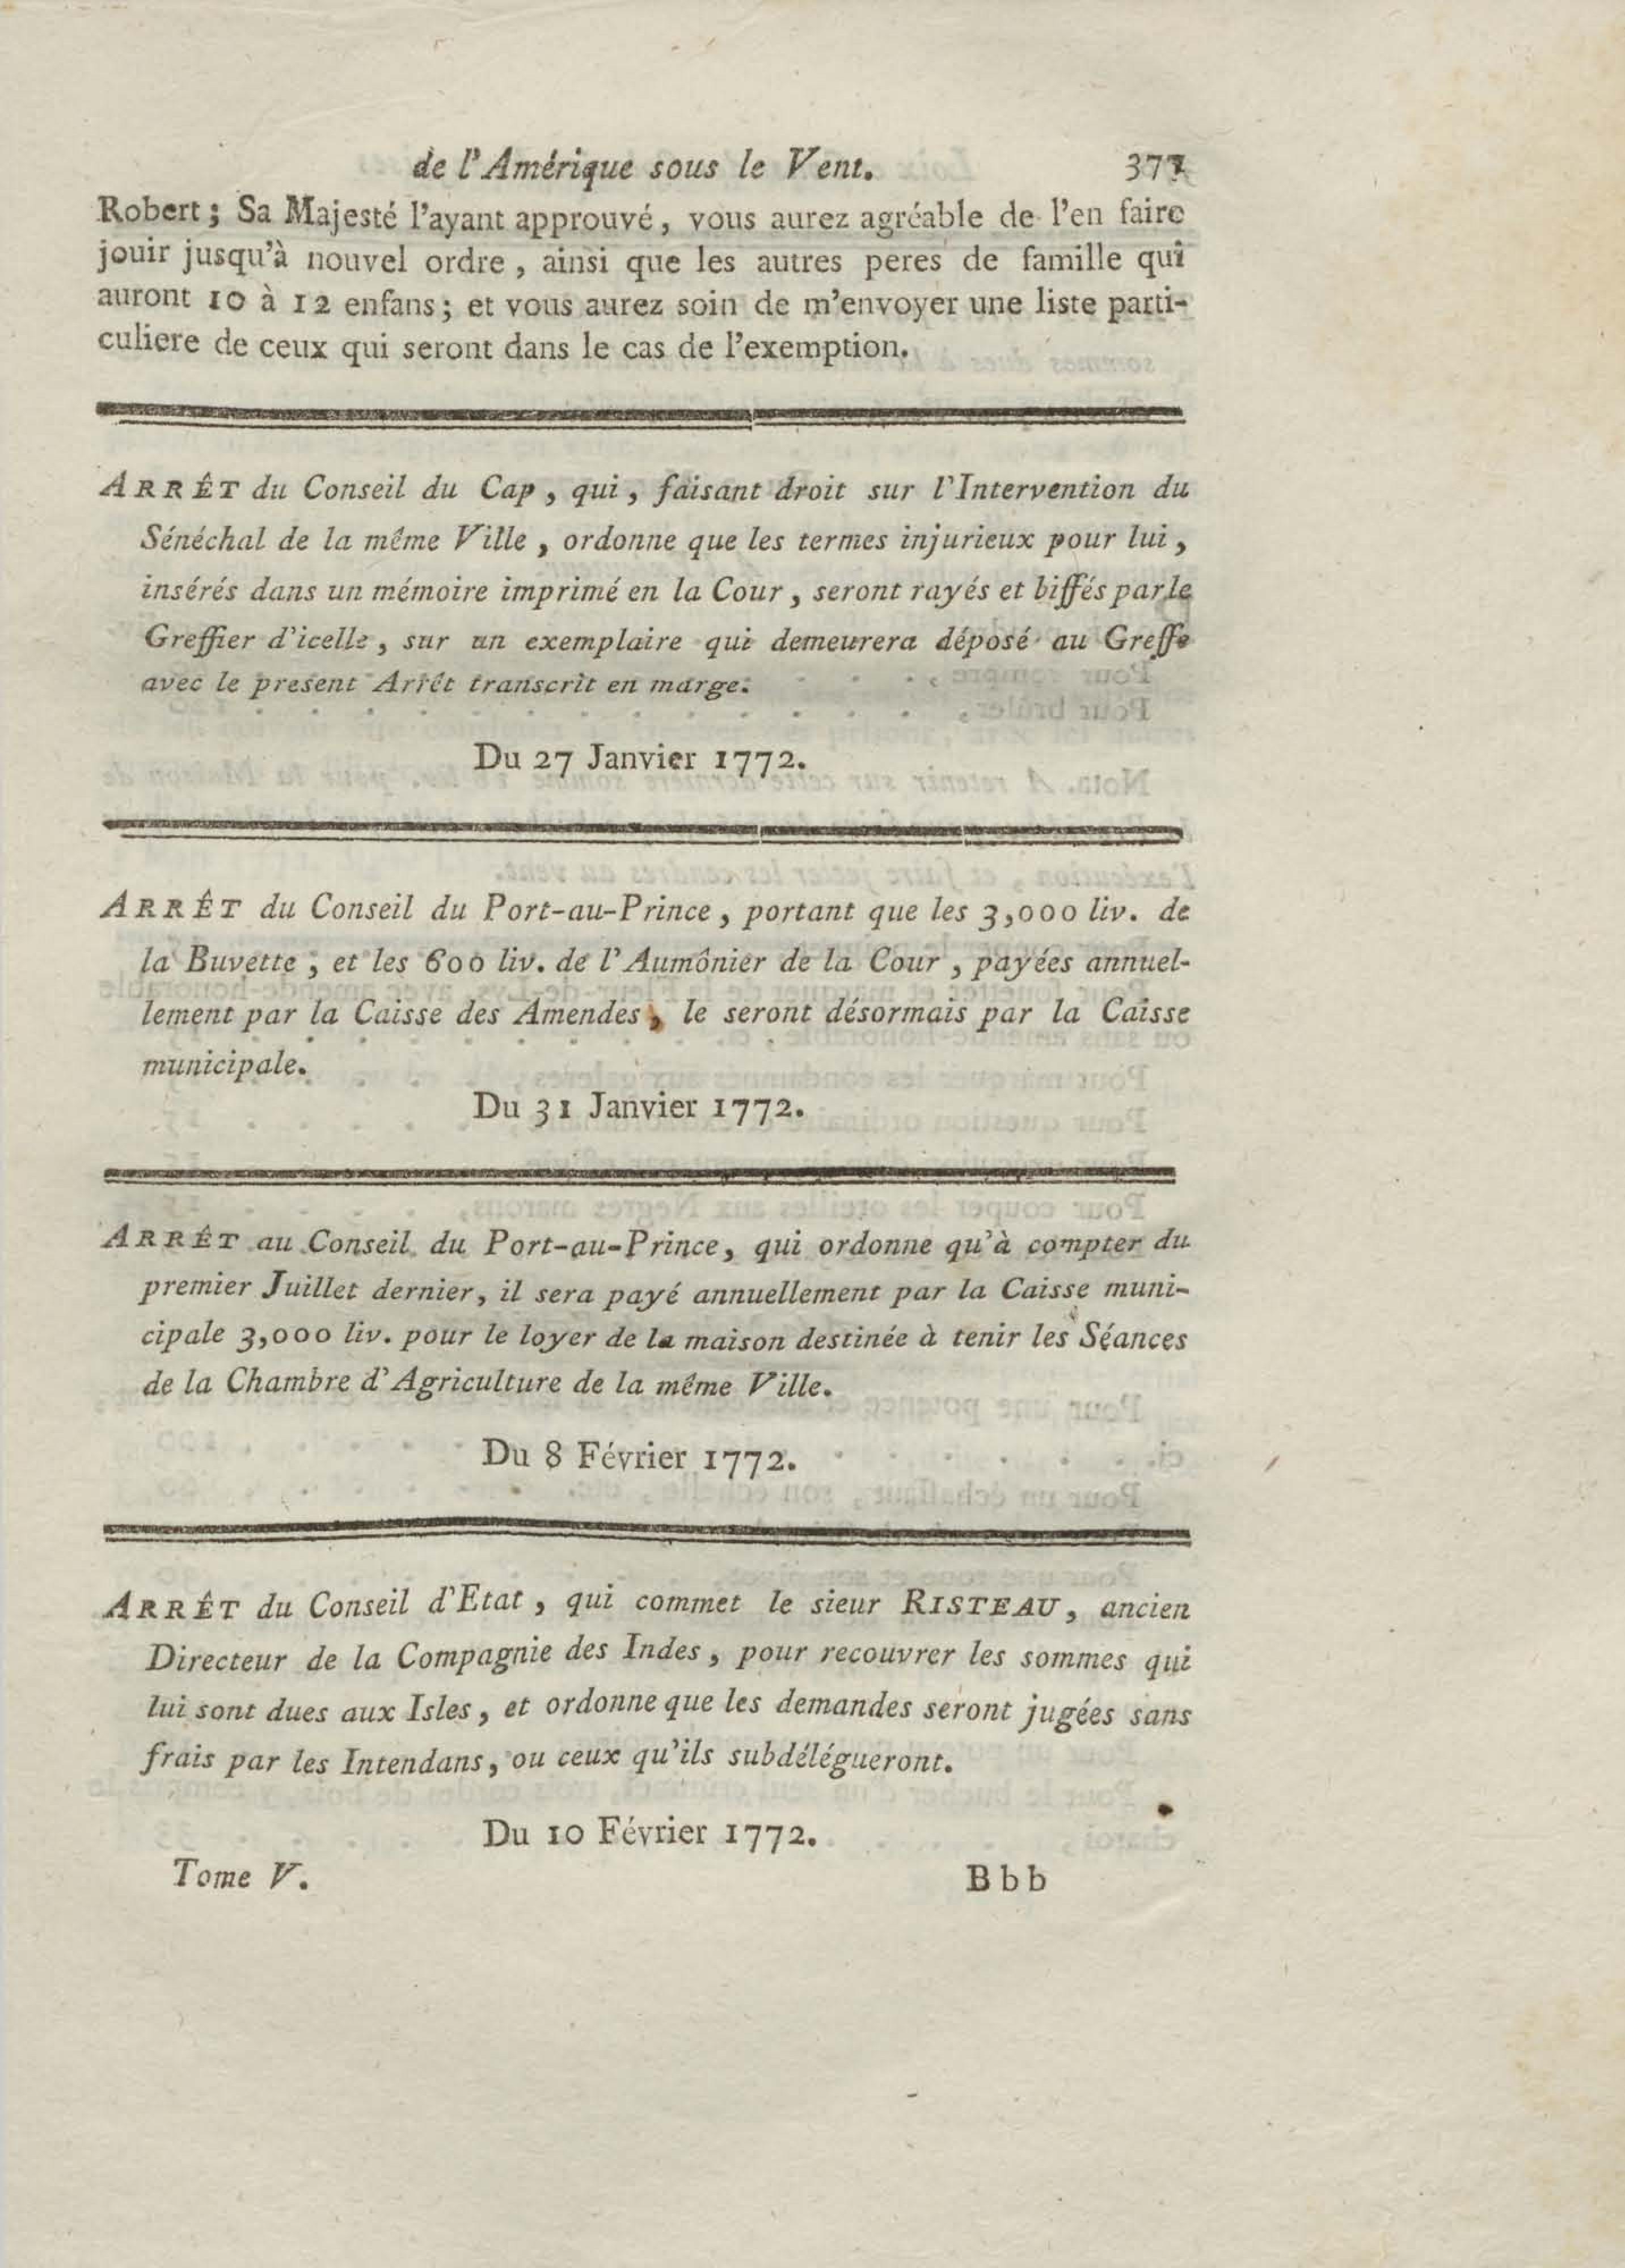 de l'Amérique sous le Vent. 377
Robert; Sa Majesté l'ayant approuvé, vous aurez agréable de l'en faire
jouir jusqu'à nouvel ordre, ainsi que les autres peres de famille qui
auront 10 à 12 enfans; et vous aurez soin de m'envoyer une liste parti-
culiere de ceux qui seront dans le cas de l'exemption.
ARRÊT du Conseil du Cap, qui, faisant droit sur l'Intervention du
Sénéchal de la même Ville, ordonne que les termes injurieux pour lui,
insérés dans un mémoire imprimé en la Cour, seront rayés et biffés par le
Greffier d'icelle, sur un exemplaire qui demeurera déposé au Greffe
avec le present Arrêt transcrit en marge.
Du 27 Janvier 1772.
ARRÊT du Conseil du Port-au-Prince, portant que les 3,000 liv. de
la Buvette, et les 600 liv. de l'Aumônier de la Cour, payées annuel-
lement par la Caisse des Amendes, le seront désormais par la Caisse
municipale.
Du 31 Janvier 1772.
ARRÊT au Conseil du Port-au-Prince, qui ordonne qu'à compter du
premier Juillet dernier, il sera payé annuellement par la Caisse muni-
cipale 3,000 liv. pour le loyer de la maison destinée à tenir les Séances
de la Chambre d'Agriculture de la même Ville.
Du 8 Février 1772.
ARRÊT du Conseil d'Etat, qui commet le sieur RISTEAU, ancien
Directeur de la Compagnie des Indes, pour recouvrer les sommes qui
lui sont dues aux Isles, et ordonne que les demandes seront jugées sans
frais par les Intendans, ou ceux qu'ils subdélégueront.
Du 10 Février 1772.
Tome V. Bbb